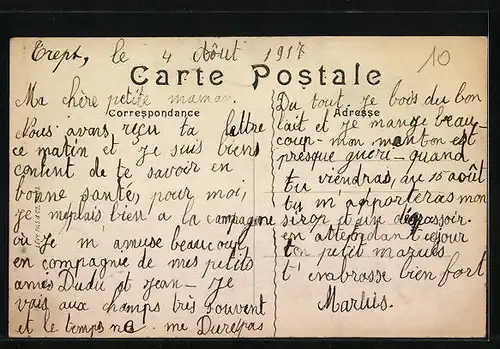 Trept, le 4 Août 1917
10
Carte Postale
Correspondance
Adresse
Ma chère petite maman.
Nous avons reçu ta lettre
ce matin et je suis biens
content de te savoir en
bonne santé, pour moi,
je me plais bien a la campagne
où Je m'amuse beaucoup
en compagnie de mes petits
amis Dudu et Jean - Je
vais aux champs très souvent
et le temps ne me Dure pas
Du tout. Je bois du bon
lait et je mange beau-
coup - mon menton est
presque guéri - quand
tu viendras, au 15 août
tu m'apporteras mon
sirop et un dégrassoir.
en attendant ce jour
ton petit
t'enabrosse bien fort
Marluis.